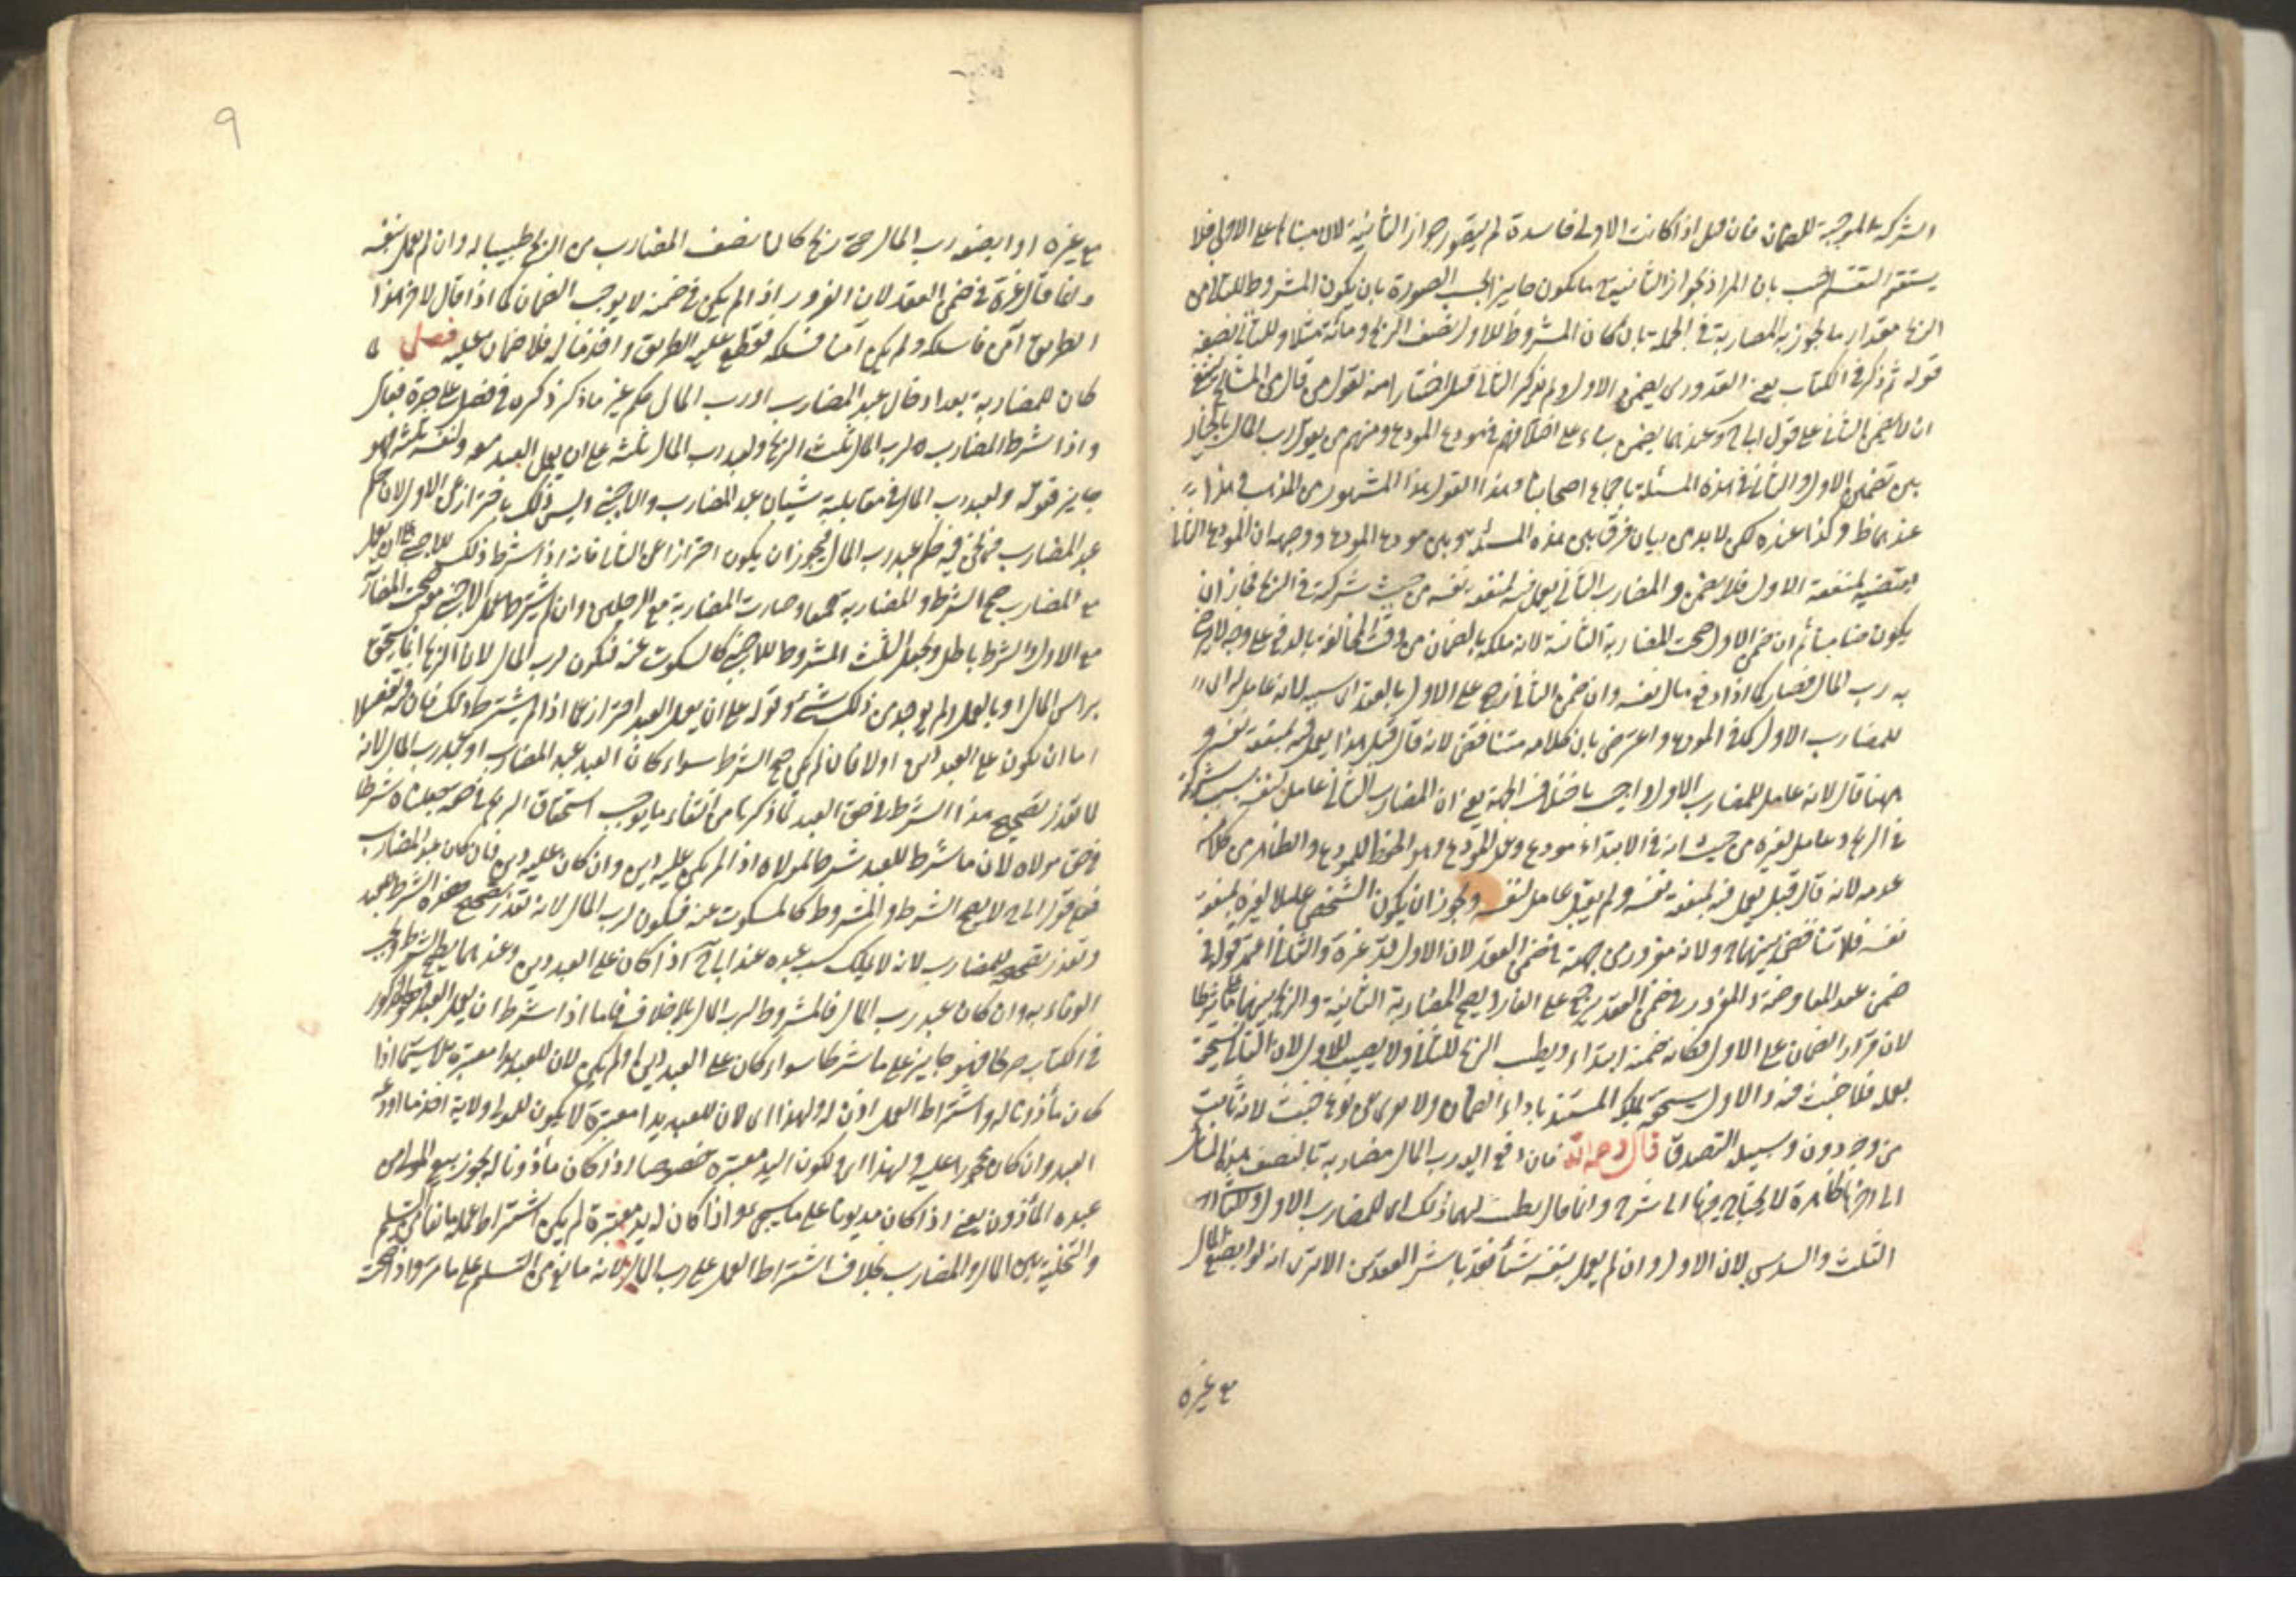 الشركة الموجبة للضمان فان قيل اذا كانت الاولى فاسدة لم يتصور جواز الثانية لان مبناها على الاولى فلا
يستقيم التقسيم اجيب بان المراد بجواز الثانية ما يكون جايزا بحسب الصورة بان يكون المشروط للثاني من
الربح مقدار ما يجوز به المضاربة في الجملة بان كان المشروط للاول نصف الربح ومائة مثلا وللثاني نصفه
قوله ثم ذكر في الكتاب يعني القدوري يضمن الاول ولم يذكر الثاني قيل اختيارا منه لقول من قال من المشايخ ينبغي
ان لا يضمن الثاني على قول ابي ح وعندهما يضمن بناء على اختلافهم في مودع المودع ومنهم من يقول رب المال بالخيار
بين تضمين الاول والثاني في هذه المسئلة باجماع اصحابنا وهذا القول هذا المشهور من المذهب في هذا
عندهما ظ وكذا عنده لكن لا بد من بيان فرق بين هذه المسئلة وبين مودع المودع ووجهه ان المودع الثاني
يقبضه لمنفعة الاول فلا يضمن والمضارب الثاني يعمل فيه لمنفعة نفسه من حيث شركته في الربح فجاز ان
يكون ضامنا ثم ان ضمن الاول صحت المضاربة الثانية لانه ملكه بالضمان من وقت المخالفة بالدفع على وجه لا يرضى
به رب المال فصار كما اذا دفع مال نفسه وان ضمن الثاني رجع على الاول بالعقد اي بسببه لانه عامل له اي
للمضارب الاول كما في المودع واعترض بان كلامه متناقض لانه قال قبل هذا يعمل فيه لمنفعة نفسه و
ههنا قال لانه عامل للمضارب الاول واجيب باختلاف الجهة يعني ان المضارب الثاني عامل لنفسه بسبب شركته
في الربح وعامل لغيره من حيث انه في الابتداء مودع وعمل المودع وهو الحفظ للمودع والظاهر من كلامه
عدمه لانه قال قبل يعمل فيه لمنفعة نفسه ولم يقل عامل لنفسه ويجوز ان يكون الشخص عاملا لغيره لمنفعة
نفسه فلا تناقض بينهما ولانه مغرور من جهته في ضمن العقد لان الاول قد غره والثاني اعتمد قوله في
ضمن عقد المعاوضة والمغرور في ضمن العقد يرجع على الغار ويصح المضاربة الثانية والربح بينهما على ما شرطا
لان قرار الضمان على الاول فكانه ضمنه ابتداء ويطيب الربح للثاني ولا يطيب للاول لان الثاني يستحقه
بعمله فلا خبث فيه والاول يستحقه بملكه المستند باداء الضمان ولا يعرى عن نوع خبث لانه ثابت
من وجه دون وجه وسبيله التصدق قال رحمه الله فان دفع اليه رب المال مضاربة بالنصف هذه المسائل
الى اخرها ظاهرة لا يحتاج فيها الى شرح وانما قال يطيب لهما ذلك اي للمضارب الاول وللثاني
الثلث والسدس لان الاول وان لم يعمل بنفسه شيئا فقد باشر العقدين الا ترى انه لو ابضع المال
مع غيره
٩
مع غيره او ابضعه رب المال حتى ربح كان نصف المضارب من الربح طيبا له وان لم يعمل بنفسه
وانما قال غره في ضمن العقد لان الغرور اذا لم يكن في ضمنه لا يوجب الضمان كما اذا قال لاخر هذا
الطريق آمن فاسلكه ولم يكن آمنا فسلكه فقطع عليه الطريق واخذ ماله فلا ضمان عليه فصل لما
كان للمضاربة بعد ادخال عبد المضارب او رب المال حكم غير ما ذكر ذكره في فصل على حدة فقال
واذا شرط المضارب لرب المال ثلث الربح ولعبد رب المال ثلثه على ان يعمل العبد معه ولنفسه ثلثه فهو
جايز فقوله ولعبد رب المال في مقابلته شيئان عبد المضارب والاجنبي وليس ذلك باحتراز عن الاول لان حكم
عبد المضارب فيما نحن فيه حكم عبد رب المال فيجوز ان يكون احترازا عن الثاني فانه اذا شرط ذلك للاجنبي على ان يعمل
مع المضارب صح الشرط والمضاربة جميعا وصارت المضاربة مع الرجلين وان لم يشترط عمل الاجنبي معه صحت المضاربة
مع الاول والشرط باطل ويجعل الثلث المشروط للاجنبي كالمسكوت عنه فيكون لرب المال لان الربح انما يستحق
براس المال او بالعمل ولم يوجد من ذلك شئ وقوله على ان يعمل العبد احتراز عما اذا لم يشترط ذلك فان فيه تفصيلا
اما ان يكون على العبد دين او لا فان لم يكن صح الشرط سواء كان العبد عبد المضارب او عبد رب المال لانه
لما تعذر تصحيح هذا الشرط في حق العبد لما ذكرنا من انتفاء ما يوجب استحقاق الربح في حقه جعلناه شرطا
في حق مولاه لان ما شرط للعبد شرط لمولاه اذا لم يكن عليه دين وان كان عليه دين فان كان عبد المضارب
فعلى قول ابي ح لا يصح الشرط والمشروط كالمسكوت عنه فيكون لرب المال لانه تعذر تصحيح هذا الشرط للعبد
وتعذر تصحيحه للمضارب لانه لا يملك كسب عبده عند ابي ح اذا كان على العبد دين وعندهما يصح الشرط ويجب
الوفاء به وان كان عبد رب المال فالمشروط لرب المال بلا خلاف فاما اذا شرط ان يعمل العبد وهو المذكور
في الكتاب صريحا فهو جايز على ما شرطا سواء كان على العبد دين او لم يكن لان للعبد يدا معتبرة لا سيما اذا
كان مأذونا له واشتراط العمل اذن له ولهذا اي لان للعبد يدا معتبرة لا يكون للمولى ولاية اخذ ما اودعه
العبد وان كان محجورا عليه ولهذا اي ولكون اليد معتبرة خصوصا اذا كان مأذونا له يجوز بيع المولى من
عبده المأذون يعني اذا كان مديونا على ما سيجئ واذا كان له يد معتبرة لم يكن اشتراط عمله مانعا من التسليم
والتخلية بين المال والمضارب بخلاف اشتراط العمل على رب المال لانه مانع من التسليم على ما مر واذا صحت